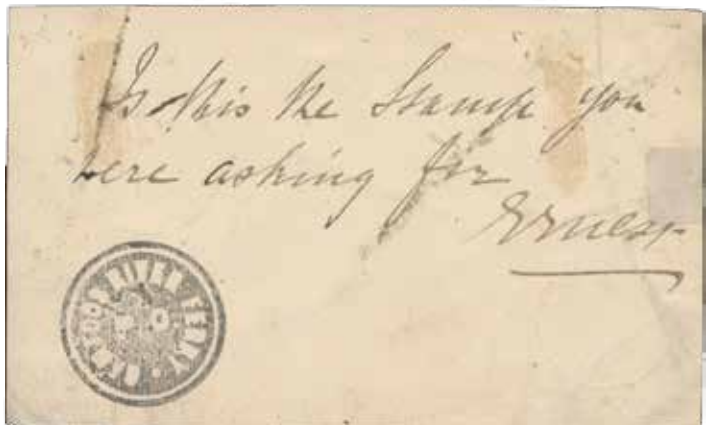 Is this the Stamp you
were asking for
Ernest
RIVER FERRY
P O